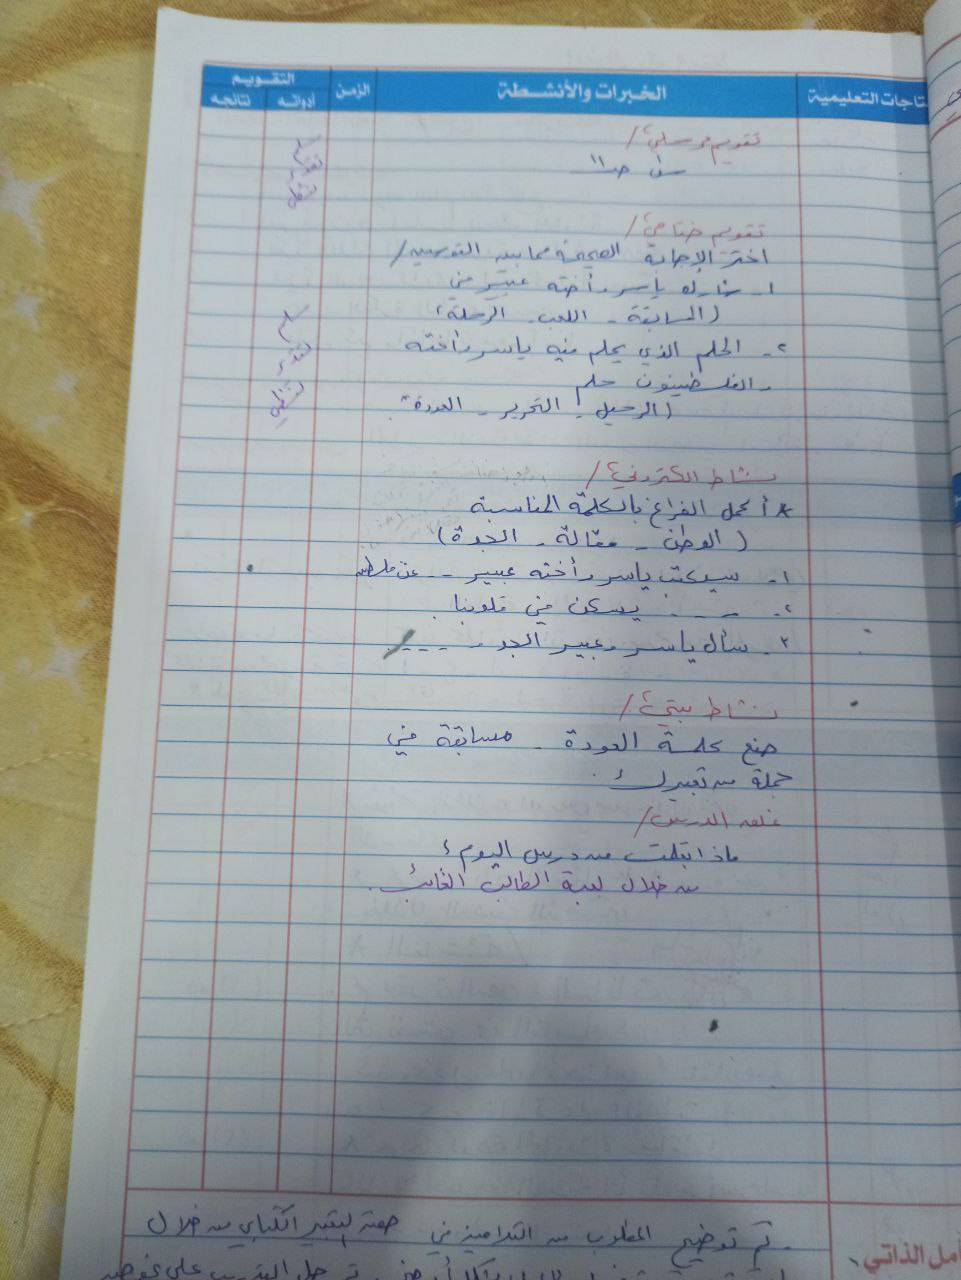 الاحتياجات التعليمية
الخبرات والأنشطة
الزمن
التقويم
أدواته
نتائجه
تقويم مرحلي /
تقويم ختامي /
اختر الإجابة الصحيحة مما بين القوسين /
١- شارك ياسر وأخته عبير في
(المسابقة - اللعب - الرحلة)
٢- الحلم الذي يحلم فيه ياسر وأخته
والفلسطينيون حلم
(الرحيل - التحرير - العودة)
نشاط الكتروني /
* أكمل الفراغ بالكلمة المناسبة
(الوطن - مقالة - الجدة)
١- سيكتب ياسر وأخته عبير -- عن فلسطين
٢- --- يسكن في قلوبنا.
٣- سأل ياسر وعبير الجد ----
نشاط بيتي /
ضع كلمة العودة - مسابقة في
جملة من تعبيرك.
غلق الدرس /
ماذا تعلمت من درس اليوم؟
من خلال لعبة الطالب الغائب.
سلم
تقدير
لفظي
تم توضيح المطلوب من التلاميذ في التعبير الكتابي من خلال
التأمل الذاتي